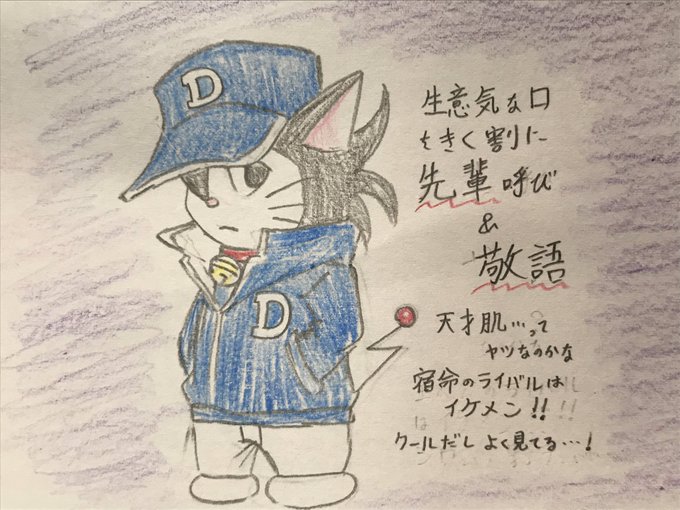 D
D
生意気な口
をきく割に
先輩呼び
&
敬語
天才肌…って
ヤツなのかな
宿命のライバルは
イケメン!!
クールだし よく見てる…!